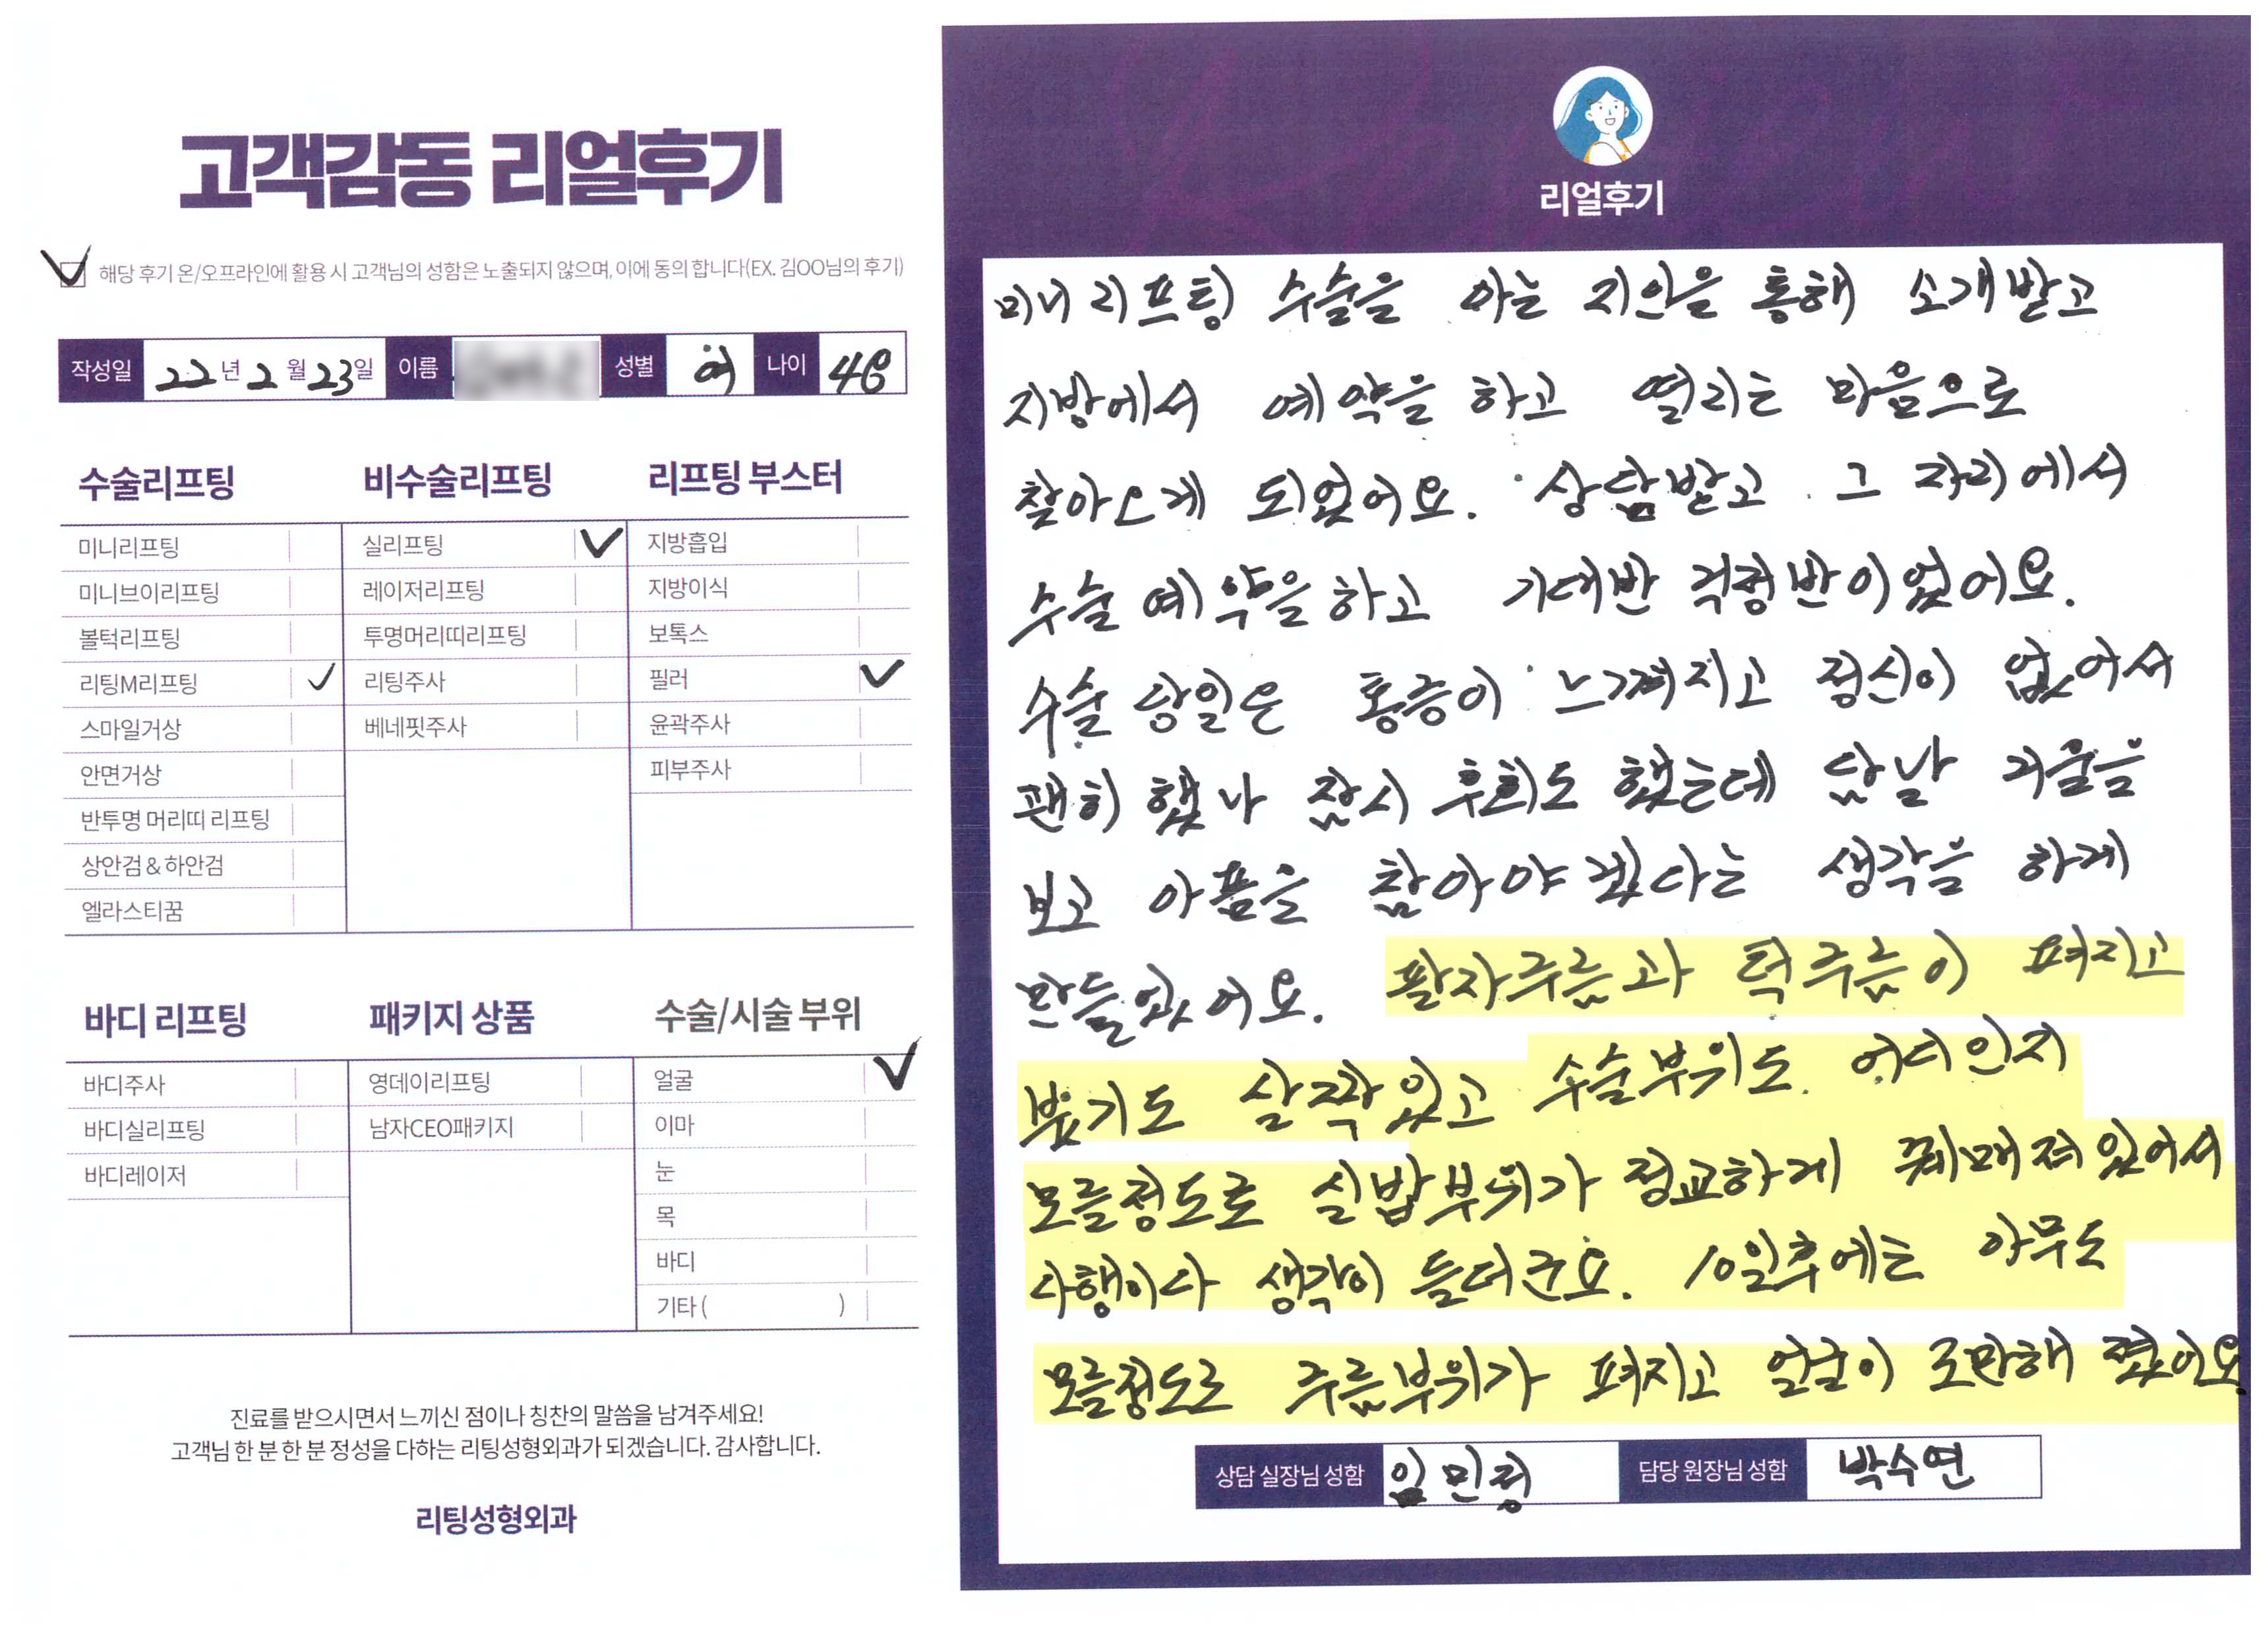 고객감동 리얼후기
해당 후기 온/오프라인에 활용 시 고객님의 성함은 노출되지 않으며, 이에 동의 합니다(EX. 김OO님의 후기)
작성일 22년 2월 23일 이름 성별 여 나이 48
수술리프팅
미니리프팅
미니브이리프팅
볼턱리프팅
리팅M리프팅
스마일거상
안면거상
반투명 머리띠 리프팅
상안검 & 하안검
엘라스티꿈
비수술리프팅
실리프팅
레이저리프팅
투명머리띠리프팅
리팅주사
베네핏주사
리프팅 부스터
지방흡입
지방이식
보톡스
필러
윤곽주사
피부주사
바디 리프팅
바디주사
바디실리프팅
바디레이저
패키지 상품
영데이리프팅
남자CEO패키지
수술/시술 부위
얼굴
이마
눈
목
바디
기타 ( )
진료를 받으시면서 느끼신 점이나 칭찬의 말씀을 남겨주세요!
고객님 한 분 한 분 정성을 다하는 리팅성형외과가 되겠습니다. 감사합니다.
리팅성형외과
리얼후기
미니 리프팅 수술을 아는 지인을 통해 소개받고
지방에서 예약을 하고 떨리는 마음으로
찾아오게 되었어요. 상담받고 그 자리에서
수술 예약을 하고 기대반 걱정반이었어요.
수술 당일은 통증이 느껴지고 정신이 없어서
괜히 했나 잠시 후회도 했는데 담날 거울을
보고 아픔을 참아야 겠다는 생각을 하게
만들었어요. 팔자주름과 턱주름이 펴지고
붓기도 살짝있고 수술부위도 어디인지
모를정도로 실밥부위가 정교하게 꿰매져있어서
다행이다 생각이 들더군요. 10일후에는 아무도
모를정도로 주름부위가 펴지고 얼굴이 조만해 졌어요
상담 실장님 성함 임민정 담당 원장님 성함 박수연